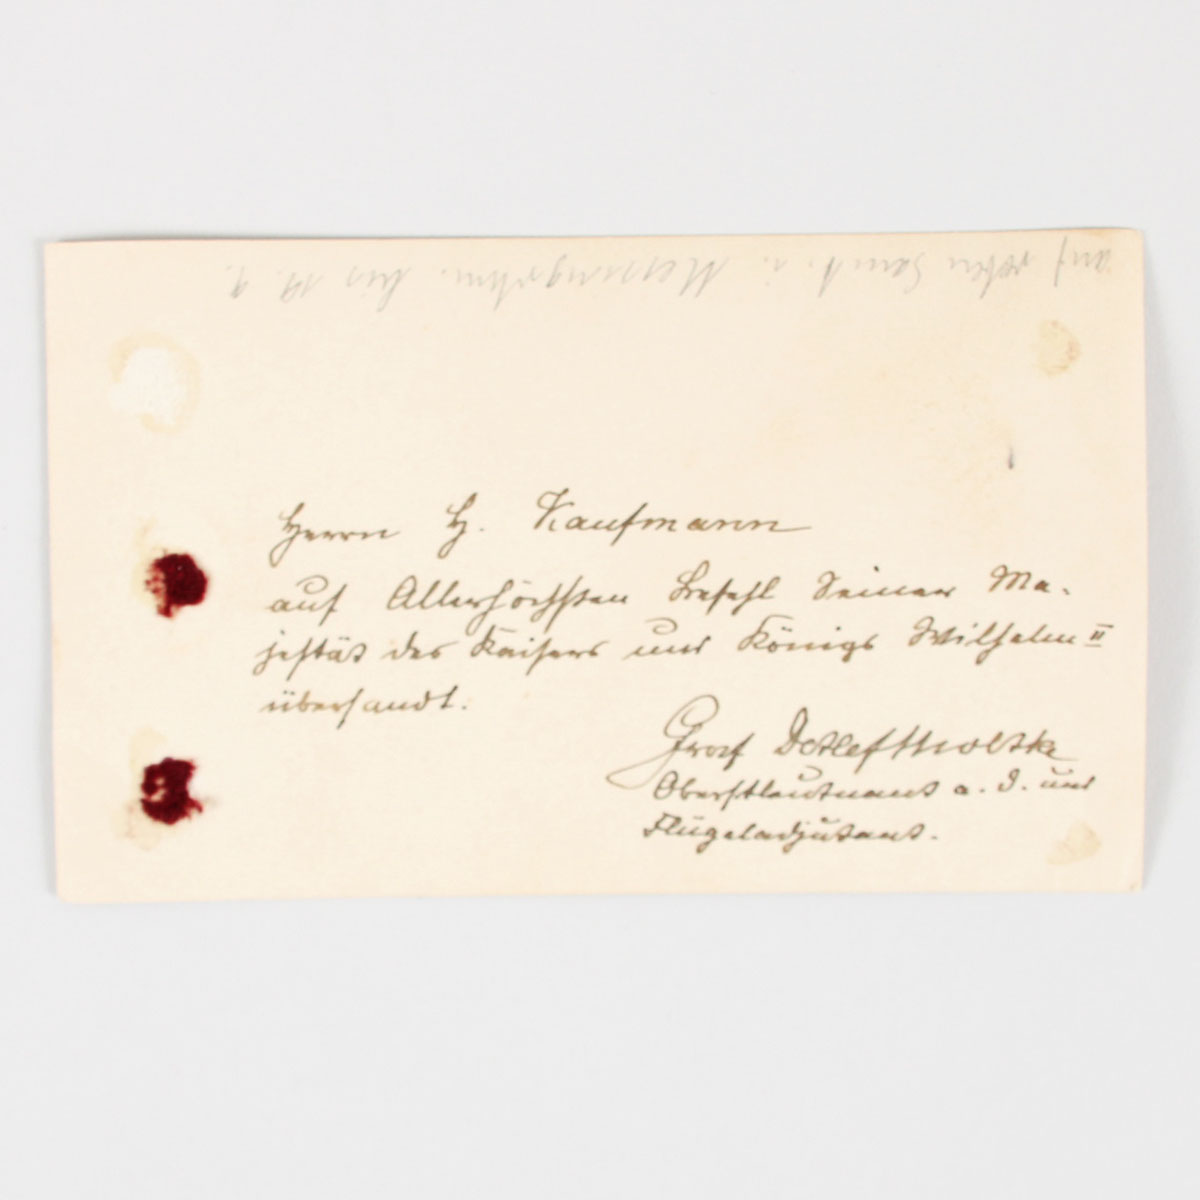 auf roten Samt i. Messingrahm. bis 19.9.
Herrn H. Kaufmann
auf Allerhöchsten Befehl Seiner Ma-
jestät des Kaisers und Königs Wilhelm II
übersandt.
Graf Detlef Moltke
Oberstleutnant a. D. und
Flügeladjutant.